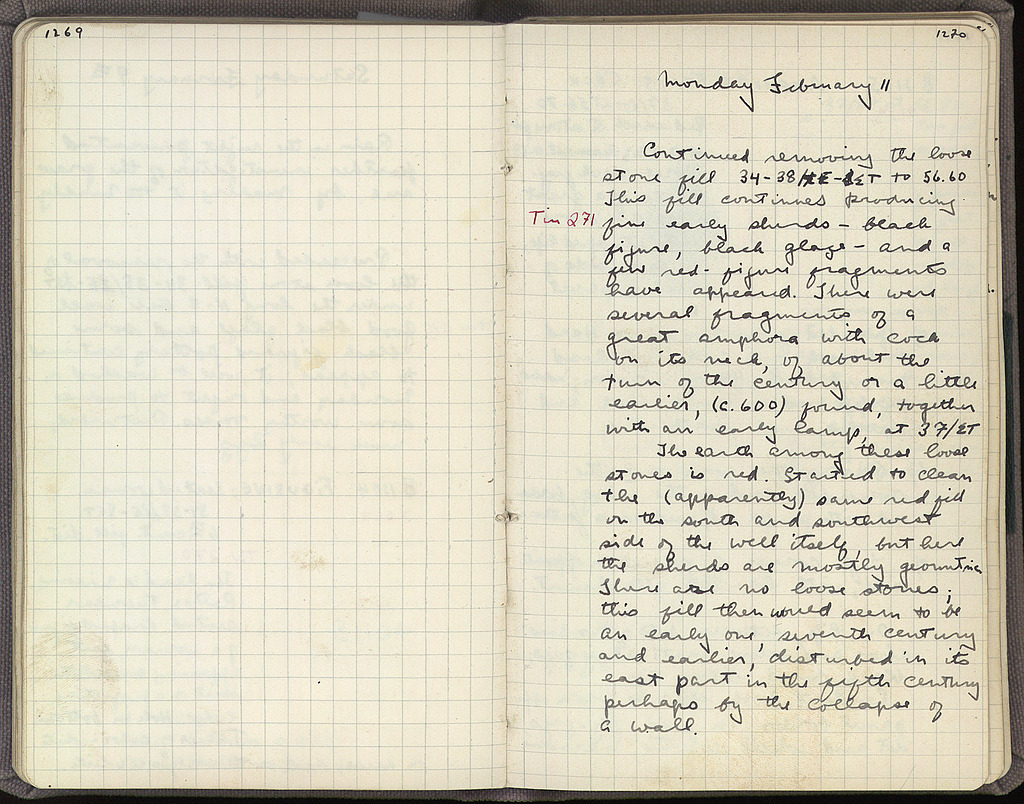 1269
1270
Monday February 11
Continued removing the loose
stone fill 34-38/ to 56.60
This fill continues producing
Tin 271 fine early sherds - black
figure, black glaze - and a
few red-figure fragments
have appeared. There were
several fragments of a
great amphora with cock
on its neck, of about the
turn of the century or a little
earlier, (c. 600) found, together
with an early lamp, at 37/ΣΤ
The earth among these loose
stones is red. Started to clean
the (apparently) same red fill
on the south and southwest
side of the well itself, but here
the sherds are mostly geometric
There are no loose stones;
this fill then would seem to be
an early one, seventh century
and earlier, disturbed in its
east part in the fifth century
perhaps by the collapse of
a wall.